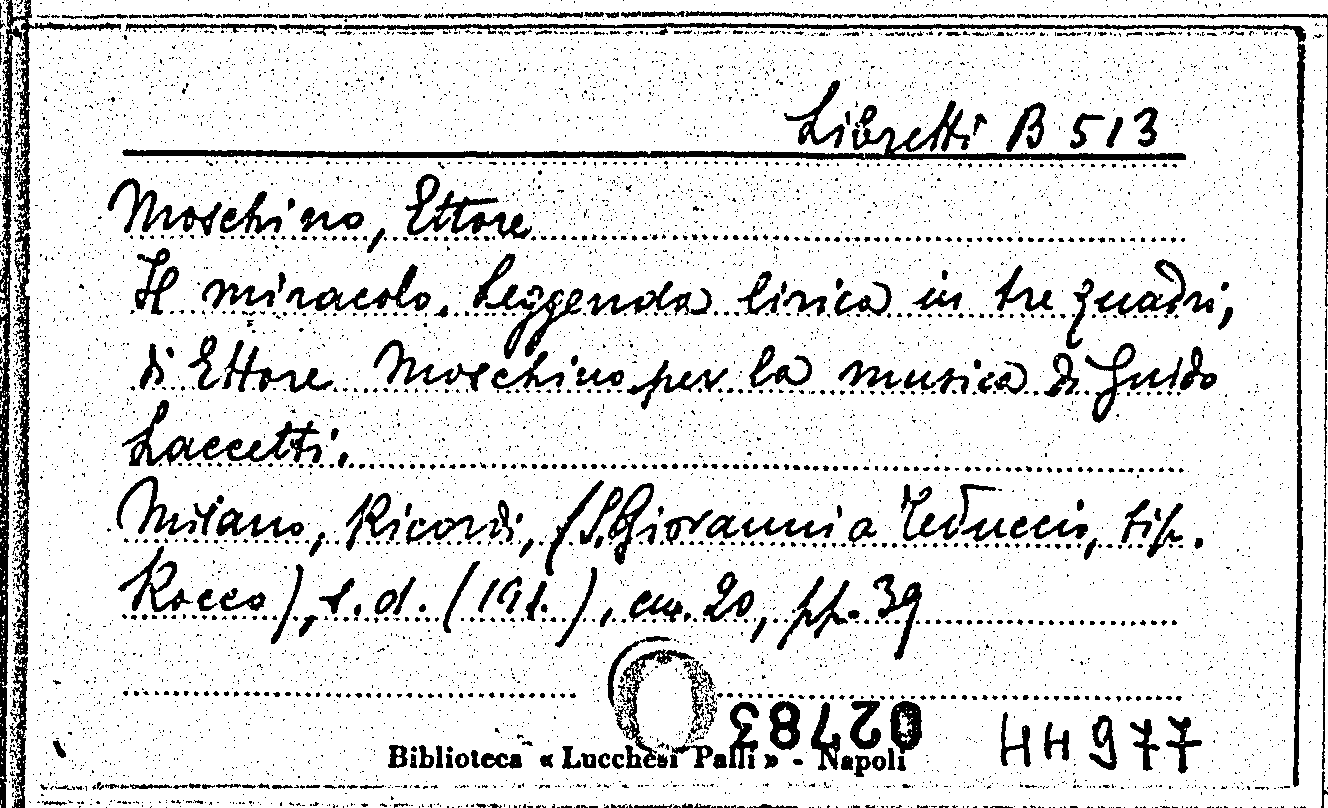 Libretti B 513
Moschino, Ettore
Il miracolo. Leggenda lirica in tre quadri,
di Ettore Moschino per la musica di Guido
Laccetti.
Milano, Ricordi, (S. Giovanni a Teduccio, tip.
Rocco), s.d. (191.), cm. 20, pp. 39
02783
44977
Biblioteca « Lucchesi Palli » - Napoli